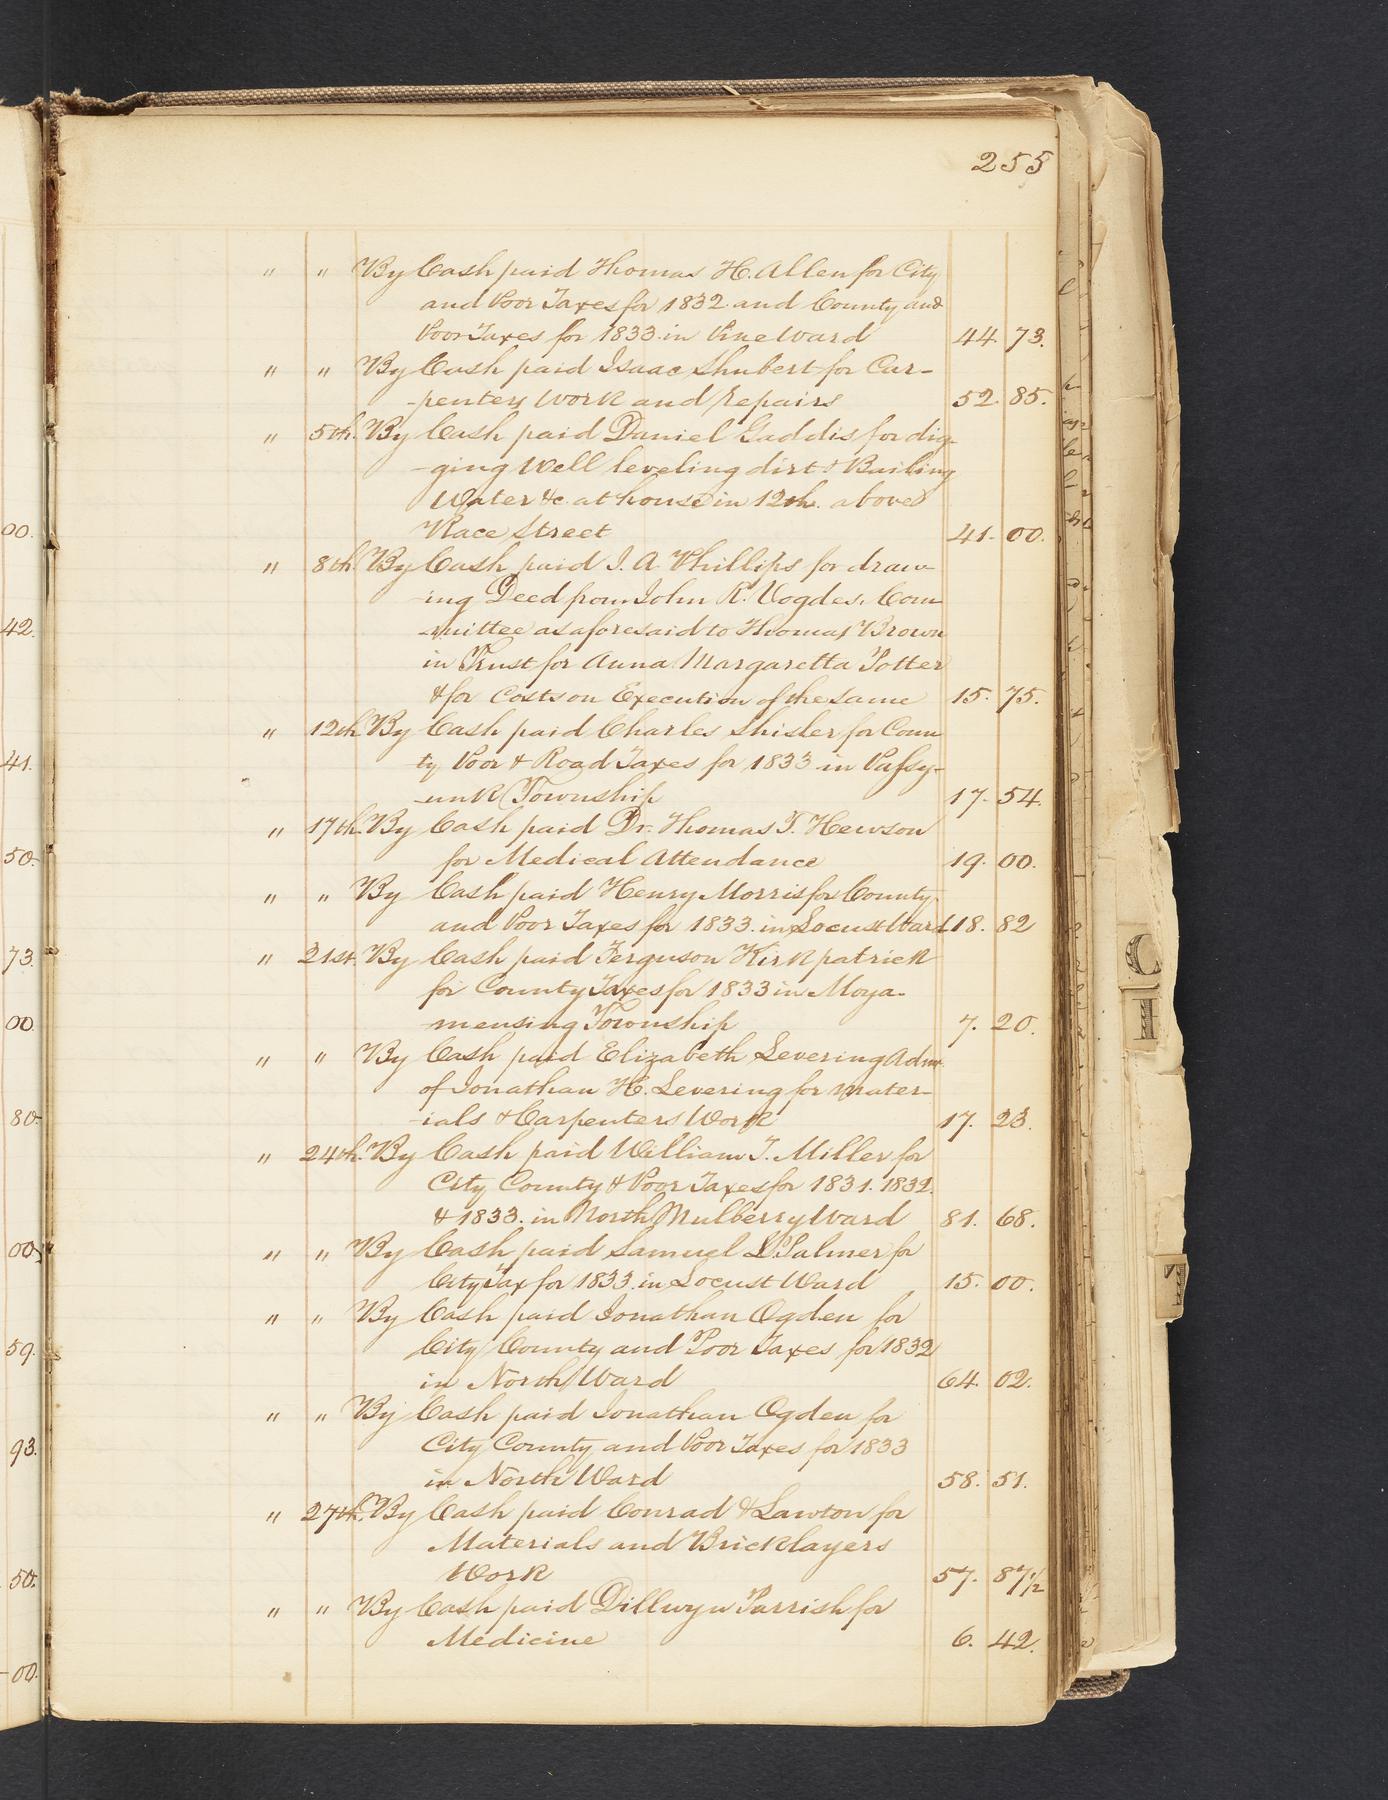 255
" " By Cash paid Thomas H. Allen for City
and Poor Taxes for 1832 and County and
Poor Taxes for 1833 in Pine Ward 44. 73.
" " By Cash paid Isaac Shubert for Car-
-penters Work and Repairs 52. 85.
" 5th. By Cash paid Daniel Gaddis for dig-
-ging Well leveling dirt & Bailing
Water &c at house in 12th. above
Race Street 41. 00.
" 8th. By Cash paid I. A. Phillips for draw-
-ing Deed from John R. Vogdes. Com
-mittee as aforesaid to Thomas Brown
in Trust for Anna Margaretta Potter
& for Costs on Execution of the same 15. 75.
" 12th. By Cash paid Charles Shisler for Coun
ty Poor & Road Taxes for 1833 in Passy-
-unk Township 17. 54.
" 17th. By Cash paid Dr. Thomas T. Hewson
for Medical Attendance 19. 00.
" " By Cash paid Henry Morris for County
and Poor Taxes for 1833. in Locust Ward. 18. 82
" 21st. By Cash paid Ferguson Kirkpatrick
for County Taxes for 1833 in Moya-
-mensing Township 7. 20.
" " By Cash paid Elizabeth Levering Admx.
of Jonathan H. Levering for mater-
-ials & Carpenters Work 17. 23.
" 24th. By Cash paid William T. Miller for
City County & Poor Taxes for 1831. 1832.
& 1833. in North Mulberry Ward 81. 68.
" " By Cash paid Samuel L. Palmer for
City Tax for 1833. in Locust Ward 15. 00.
" " By Cash paid Jonathan Ogden for
City County and Poor Taxes for 1832
in North Ward 64. 02.
" " By Cash paid Jonathan Ogden for
City County and Poor Taxes for 1833
in North Ward 58. 51.
" 27th. By Cash paid Conrad & Lawton for
Materials and Bricklayers
Work 57. 87 1/2
" " By Cash paid Dillwyn Parrish for
Medicine 6. 42.
00.
42.
41.
50.
73.
00.
80.
00.
59.
93.
50.
00.
C
I
T